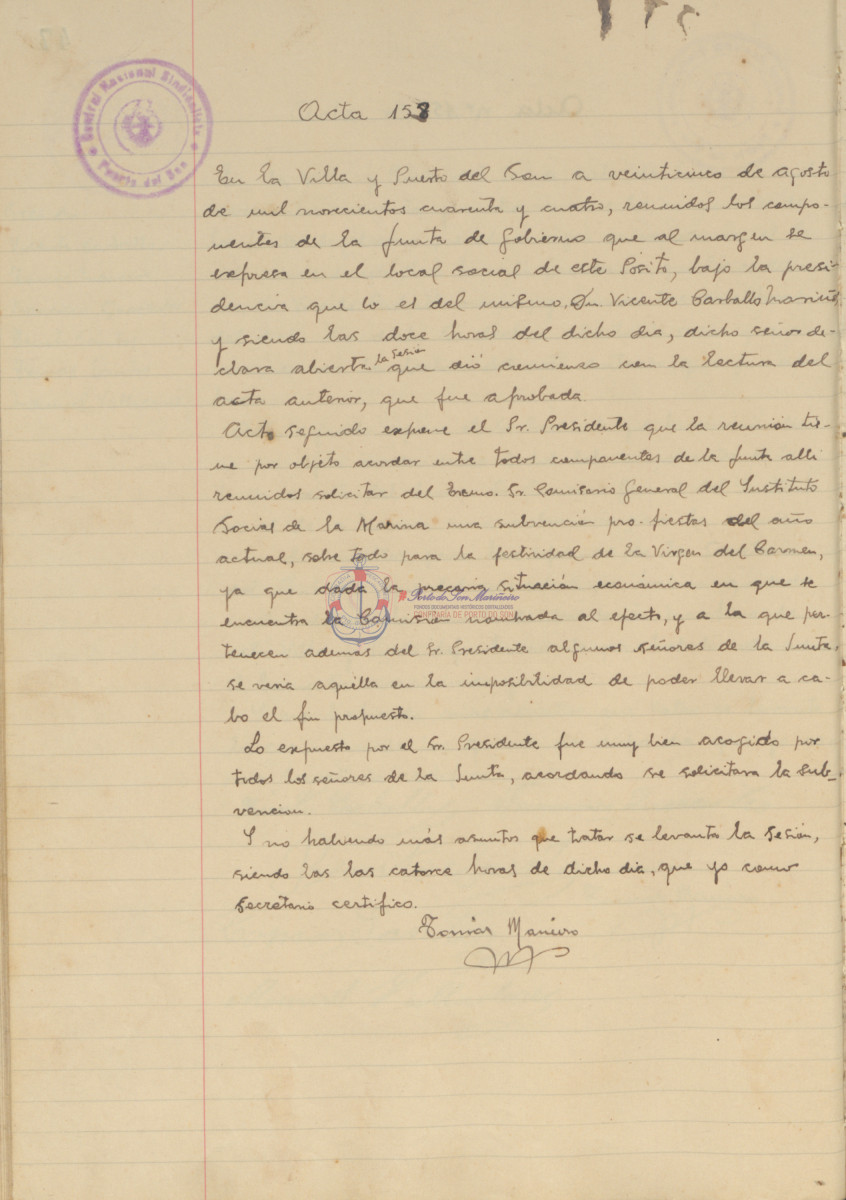 Central Nacional Sindicalista
Puerto del Son
Acta 158
En la Villa y Puerto del Son a veinticinco de agosto
de mil novecientos cuarenta y cuatro, reunidos los compo-
nentes de la Junta de Gobierno que al margen se
expresa en el local social de este Pósito, bajo la presi-
dencia que lo es del mismo, Dn Vicente Carballo Mariño
y siendo las doce horas del dicho dia, dicho señor de-
clara abierta la sesión que dió comienzo con la lectura del
acta anterior, que fue aprobada.
Acto seguido expone el Sr. Presidente que la reunión tie-
ne por objeto acordar entre todos componentes de la Junta alli
reunidos solicitar del Excmo. Sr. Comisario General del Instituto
Social de la Marina una subvención pro-fiestas del año
actual, sobre todo para la festividad de la Virgen del Carmen,
ya que dada la precaria situación económica en que se
encuentra la Comisión nombrada al efecto, y a la que per-
tenecen además del Sr. Presidente algunos señores de la Junta,
se veria aquélla en la imposibilidad de poder llevar a ca-
bo el fin propuesto.
Lo expuesto por el Sr. Presidente fue muy bien acogido por
todos los señores de la Junta, acordando se solicitara la sub-
vencion.
Y no habiendo más asuntos que tratar se levanto la sesión,
siendo las las catorce horas de dicho dia, que yo como
secretario certifico.
Tomás Maneiro
Porto do Son Mariñeiro
FONDOS DOCUMENTAIS HISTÓRICOS DIXITALIZADOS
CONFRARÍA DE PORTO DO SON